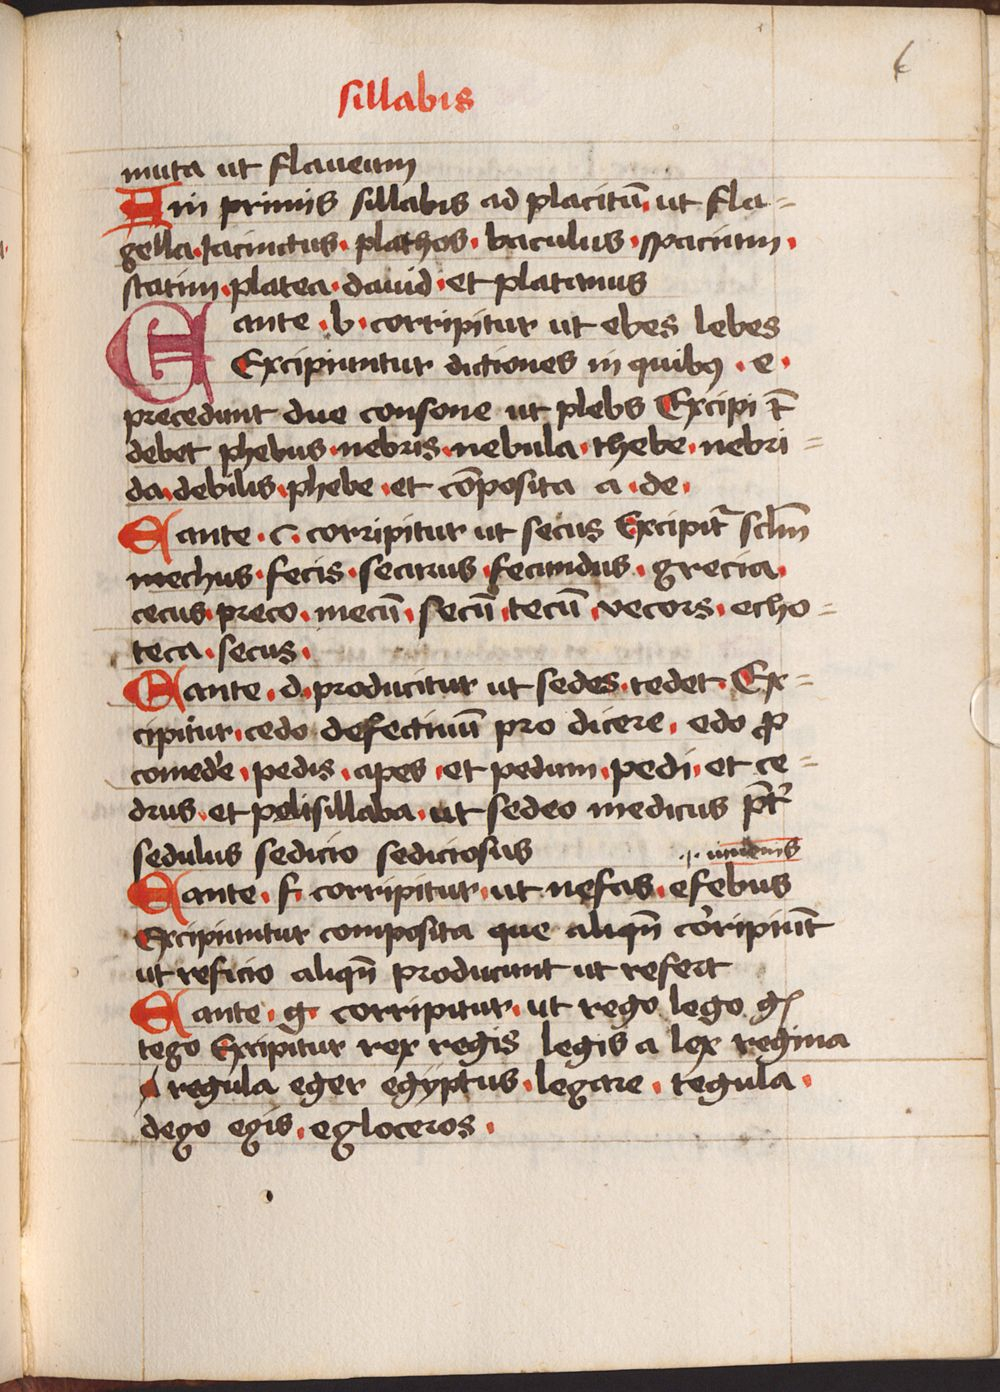 6
sillabis
muta ut flaueum
A in primis sillabis ad placitū ut fla=
gella Jacinctus plathos baculus spacium
statim platea dauid et platanus
E ante b corripitur ut ebes lebes
Excipiuntur dictiones in quibꝯ e
precedunt due consone ut plebs Excipi t̄
debet phebus nebris nebula thebe nebri=
da debilis phebe et cōposita a de
E ante c corripitur ut secus Excipit᷑
mechus fecis securus fecundus grecia
cecus preco mecū secū tecū vecors echo=
teca secus
E ante d producitur ut sedes tedet Ex=
cipitur cedo defectiuū pro dicere edo ꝓ
comed'e pedis apes et pedum pedi et ce=
drus et polisillaba ut sedeo medicus
sedulus sedicio sediciosus
E ante f corripitur ut nefas efebus
Excipiuntur composita que aliqn̄ cōripiūt
ut reficio aliqn̄ producunt ut refert
E ante g corripitur ut rego lego
tego Excipitur rex regis legis a lex regina
regula eger egyptus legare tegula
dego egis egloceros